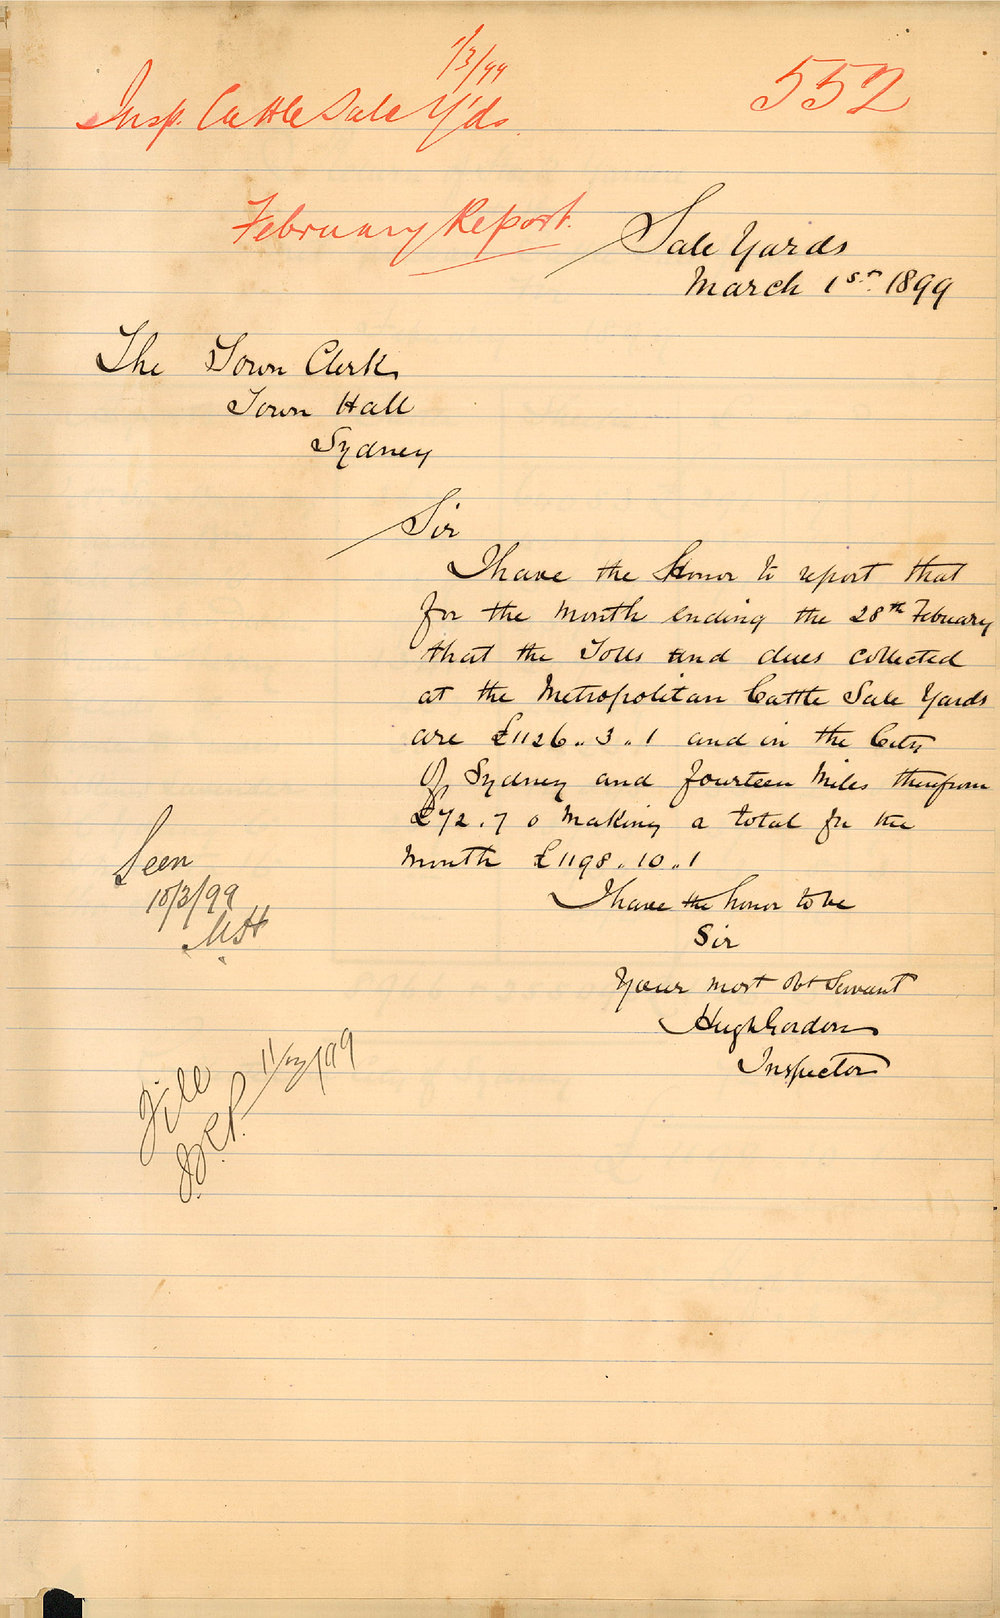 1/3/99
Insp. Cattle Sale Y'ds.
552
February Report.
Sale Yards
March 1st 1899
The Town Clerk
Town Hall
Sydney
Sir
I have the Honor to report that
for the Month ending the 28th February
that the Tolls and dues collected
at the Metropolitan Cattle Sale Yards
are £1126..3..1 and in the City
of Sydney and fourteen Miles therefrom
£72.7 0 Making a total for the
Month £1198.10.1
I have the honor to be
Sir
Your most Obt Servant
Hugh Gordon
Inspector
Seen
10/3/99
File
11/3/99